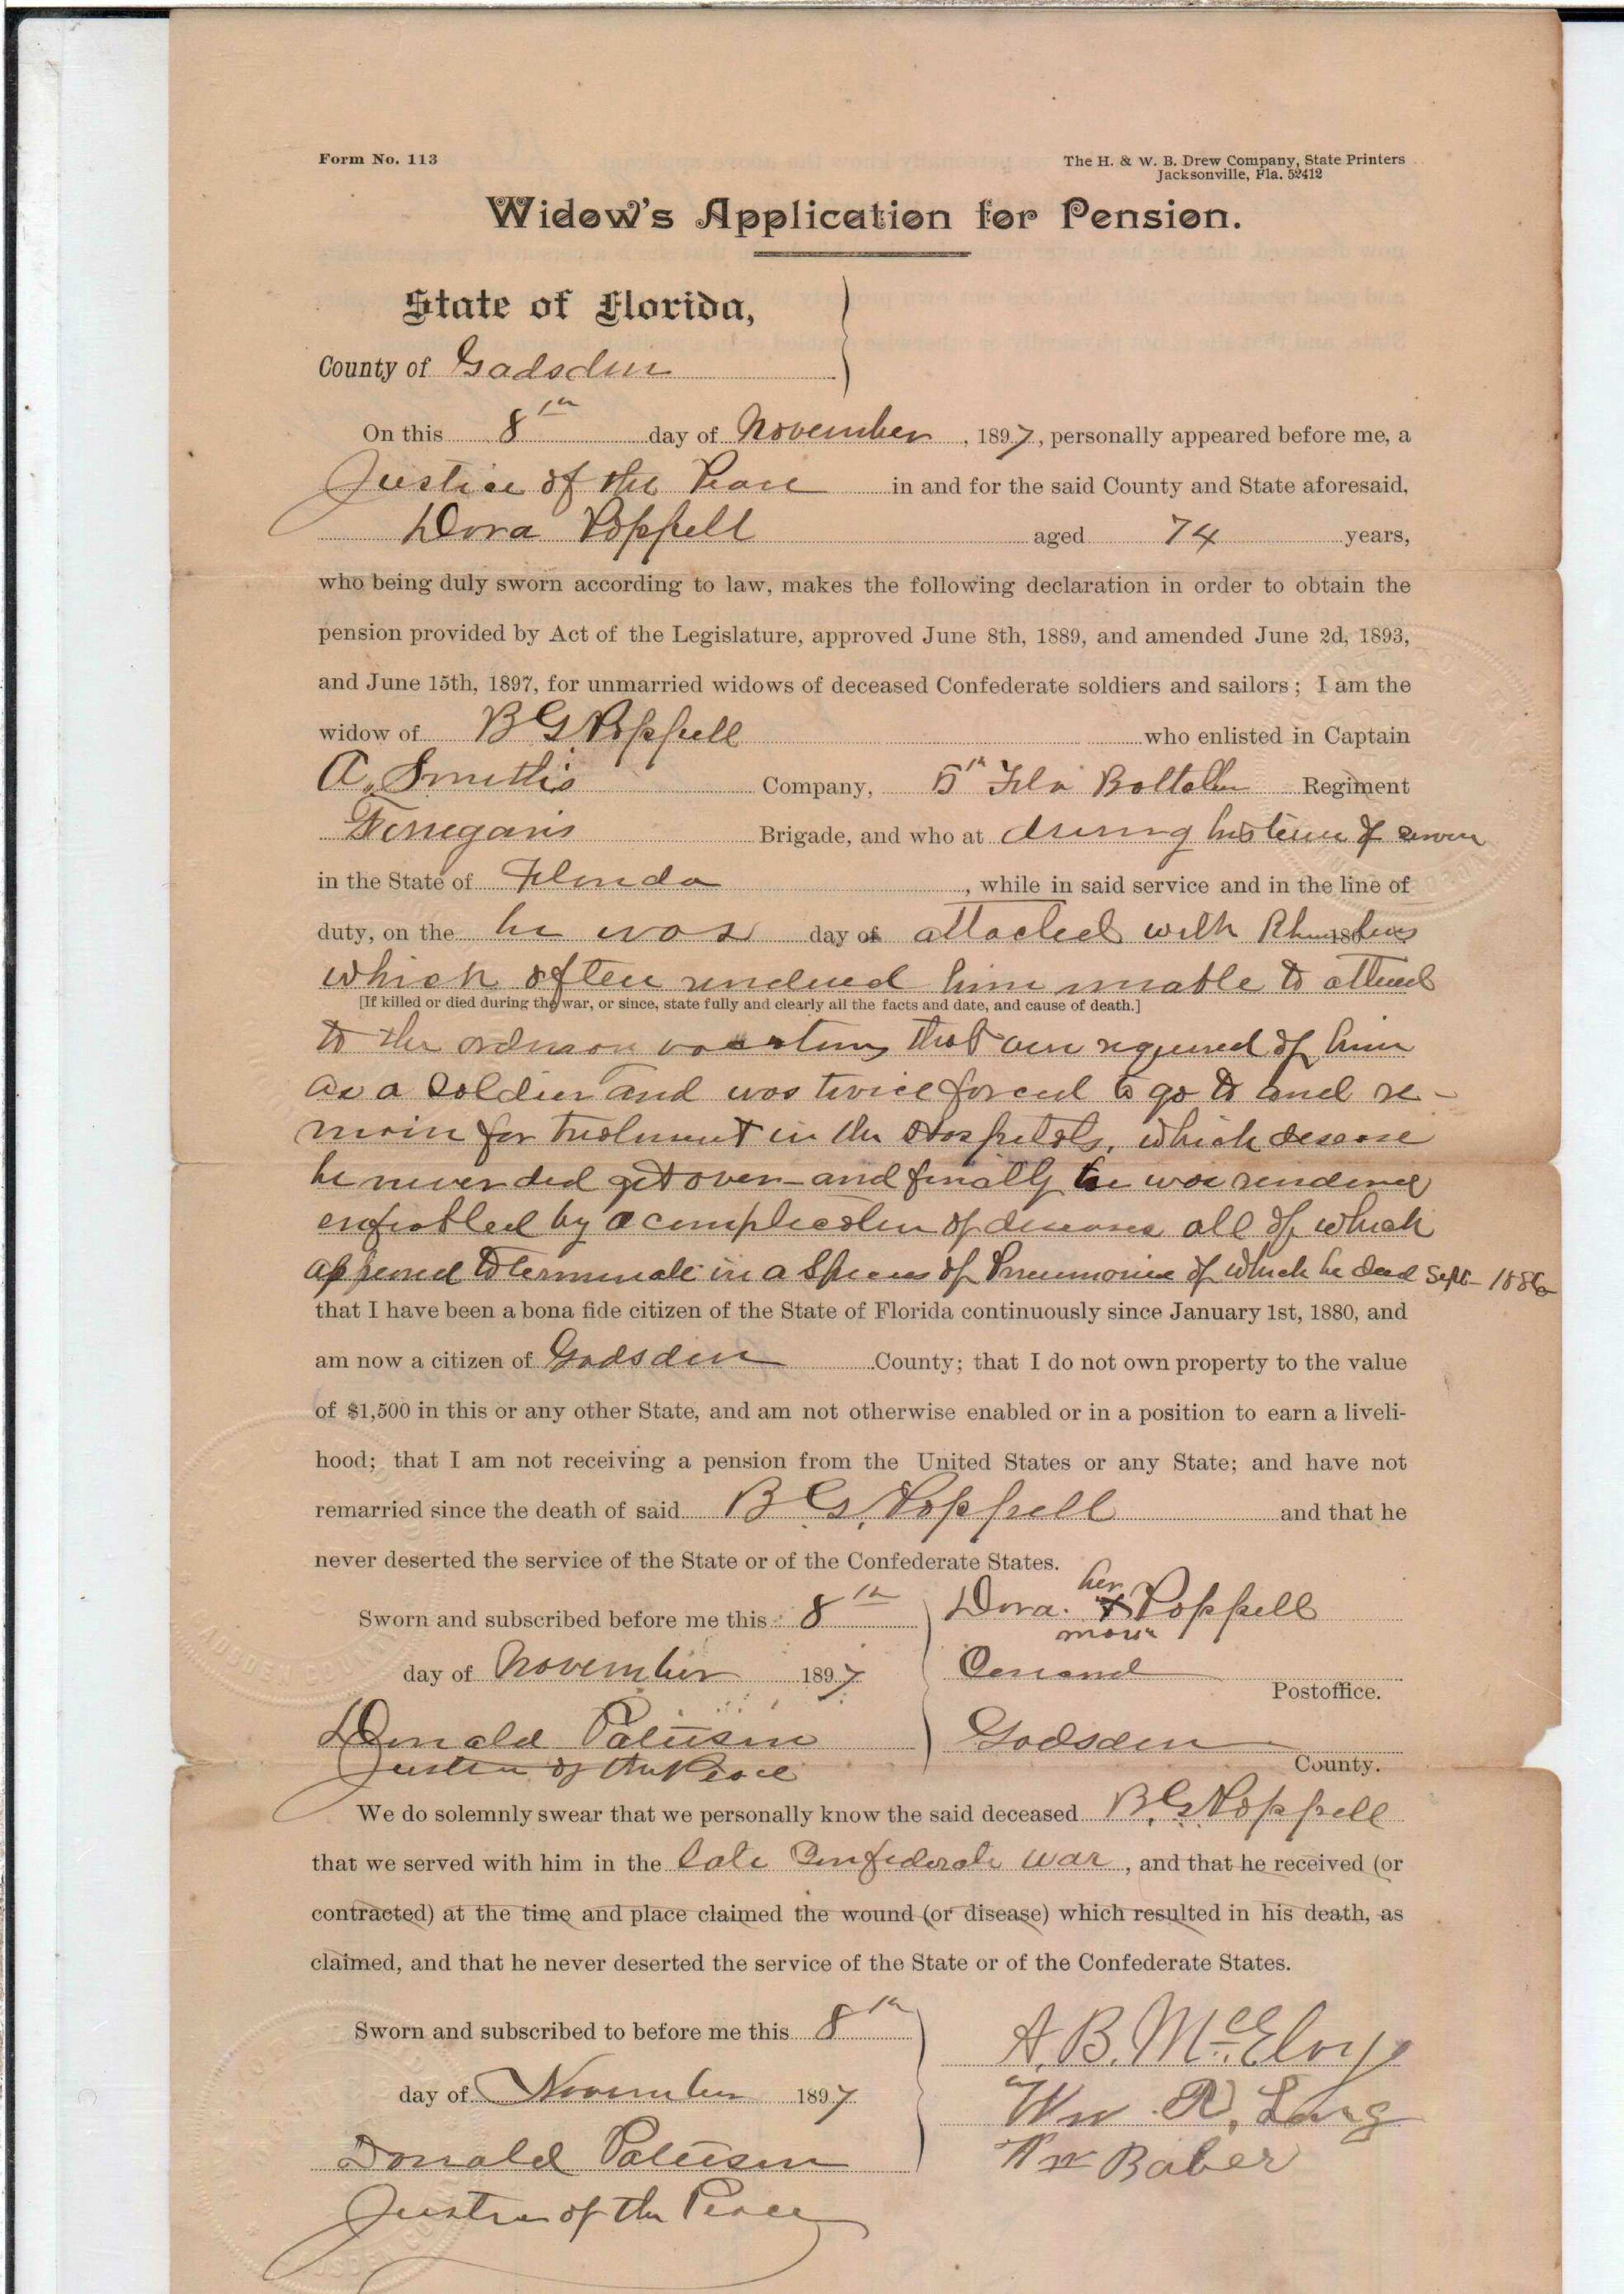 Form No. 113
The H. & W. B. Drew Company, State Printers
Jacksonville, Fla. 52412
Widow's Application for Pension.
State of Florida,
County of Gadsden
On this 8th day of November, 1897, personally appeared before me, a
Justice of the Peace in and for the said County and State aforesaid,
Dora Poppell aged 74 years,
who being duly sworn according to law, makes the following declaration in order to obtain the
pension provided by Act of the Legislature, approved June 8th, 1889, and amended June 2d, 1893,
and June 15th, 1897, for unmarried widows of deceased Confederate soldiers and sailors; I am the
widow of B G Poppell who enlisted in Captain
A. Smith's Company, 5th Fla Battalion Regiment
Finegans Brigade, and who at during his time of
in the State of Florida, while in said service and in the line of
duty, on the he was day of attacked with 186
which often rendered him unable to attend
[If killed or died during the war, or since, state fully and clearly all the facts and date, and cause of death.]
to the that was required of him
as a Soldier and was twice forced to go to and re-
main for treatment in the Hospitals, which desease
he never did get over and finally he was rendered
enfeebled by a complication of diseases all of which
appeared to terminate in a Species of Pneumonia of which he died Sept- 1886
that I have been a bona fide citizen of the State of Florida continuously since January 1st, 1880, and
am now a citizen of Gadsden County; that I do not own property to the value
of $1,500 in this or any other State, and am not otherwise enabled or in a position to earn a liveli-
hood; that I am not receiving a pension from the United States or any State; and have not
remarried since the death of said B. G. Poppell and that he
never deserted the service of the State or of the Confederate States.
her
Sworn and subscribed before me this 8th Dora. X Poppell
mark
day of November 1897
Postoffice.
Donald Gadsden
County.
Justice of the Peace
We do solemnly swear that we personally know the said deceased B. G. Poppell
that we served with him in the late Confederate war, and that he received (or
contracted) at the time and place claimed the wound (or disease) which resulted in his death, as
claimed, and that he never deserted the service of the State or of the Confederate States.
Sworn and subscribed to before me this 8th A. B. McElvy
day of November 1897 Wm R. Long
Donald Baber
Justice of the Peace